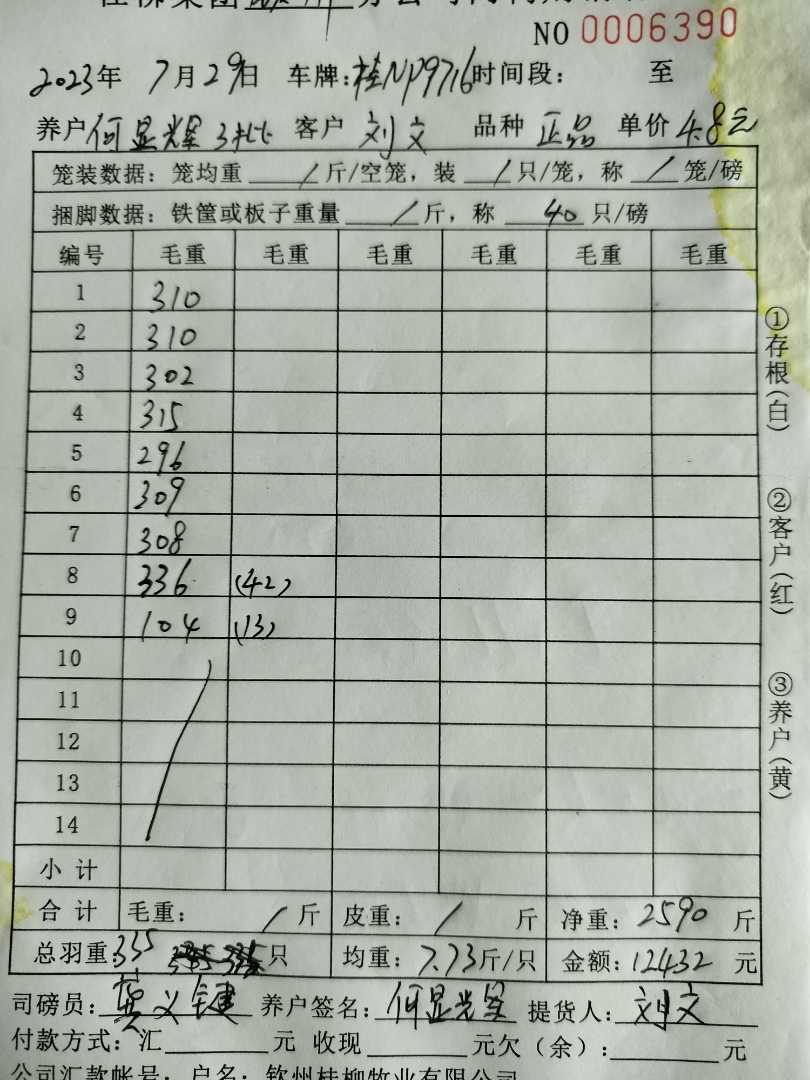 NO 0006390
2023年 7月29日 车牌:桂NP9716时间段: 至
养户何显光星 3批 客户 刘文 品种 正品 单价4.8元
笼装数据: 笼均重 / 斤/空笼, 装 / 只/笼, 称 / 笼/磅
捆脚数据: 铁筐或板子重量 / 斤, 称 40 只/磅
编号 毛重 毛重 毛重 毛重 毛重 毛重
1 310
2 310
3 302
4 315
5 296
6 309
7 308
8 336 (42)
9 104 (13)
10
11
12
13
14
小计
合计 毛重: / 斤 皮重: / 斤 净重: 2590 斤
总羽重:335 只 均重: 7.73斤/只 金额:12432 元
司磅员: 义健 养户签名: 何显光星 提货人: 刘文
付款方式: 汇 元 收现 元欠(余): 元
公司汇款帐号: 户名: 钦州桂柳牧业有限公司
①存根(白)
②客户(红)
③养户(黄)